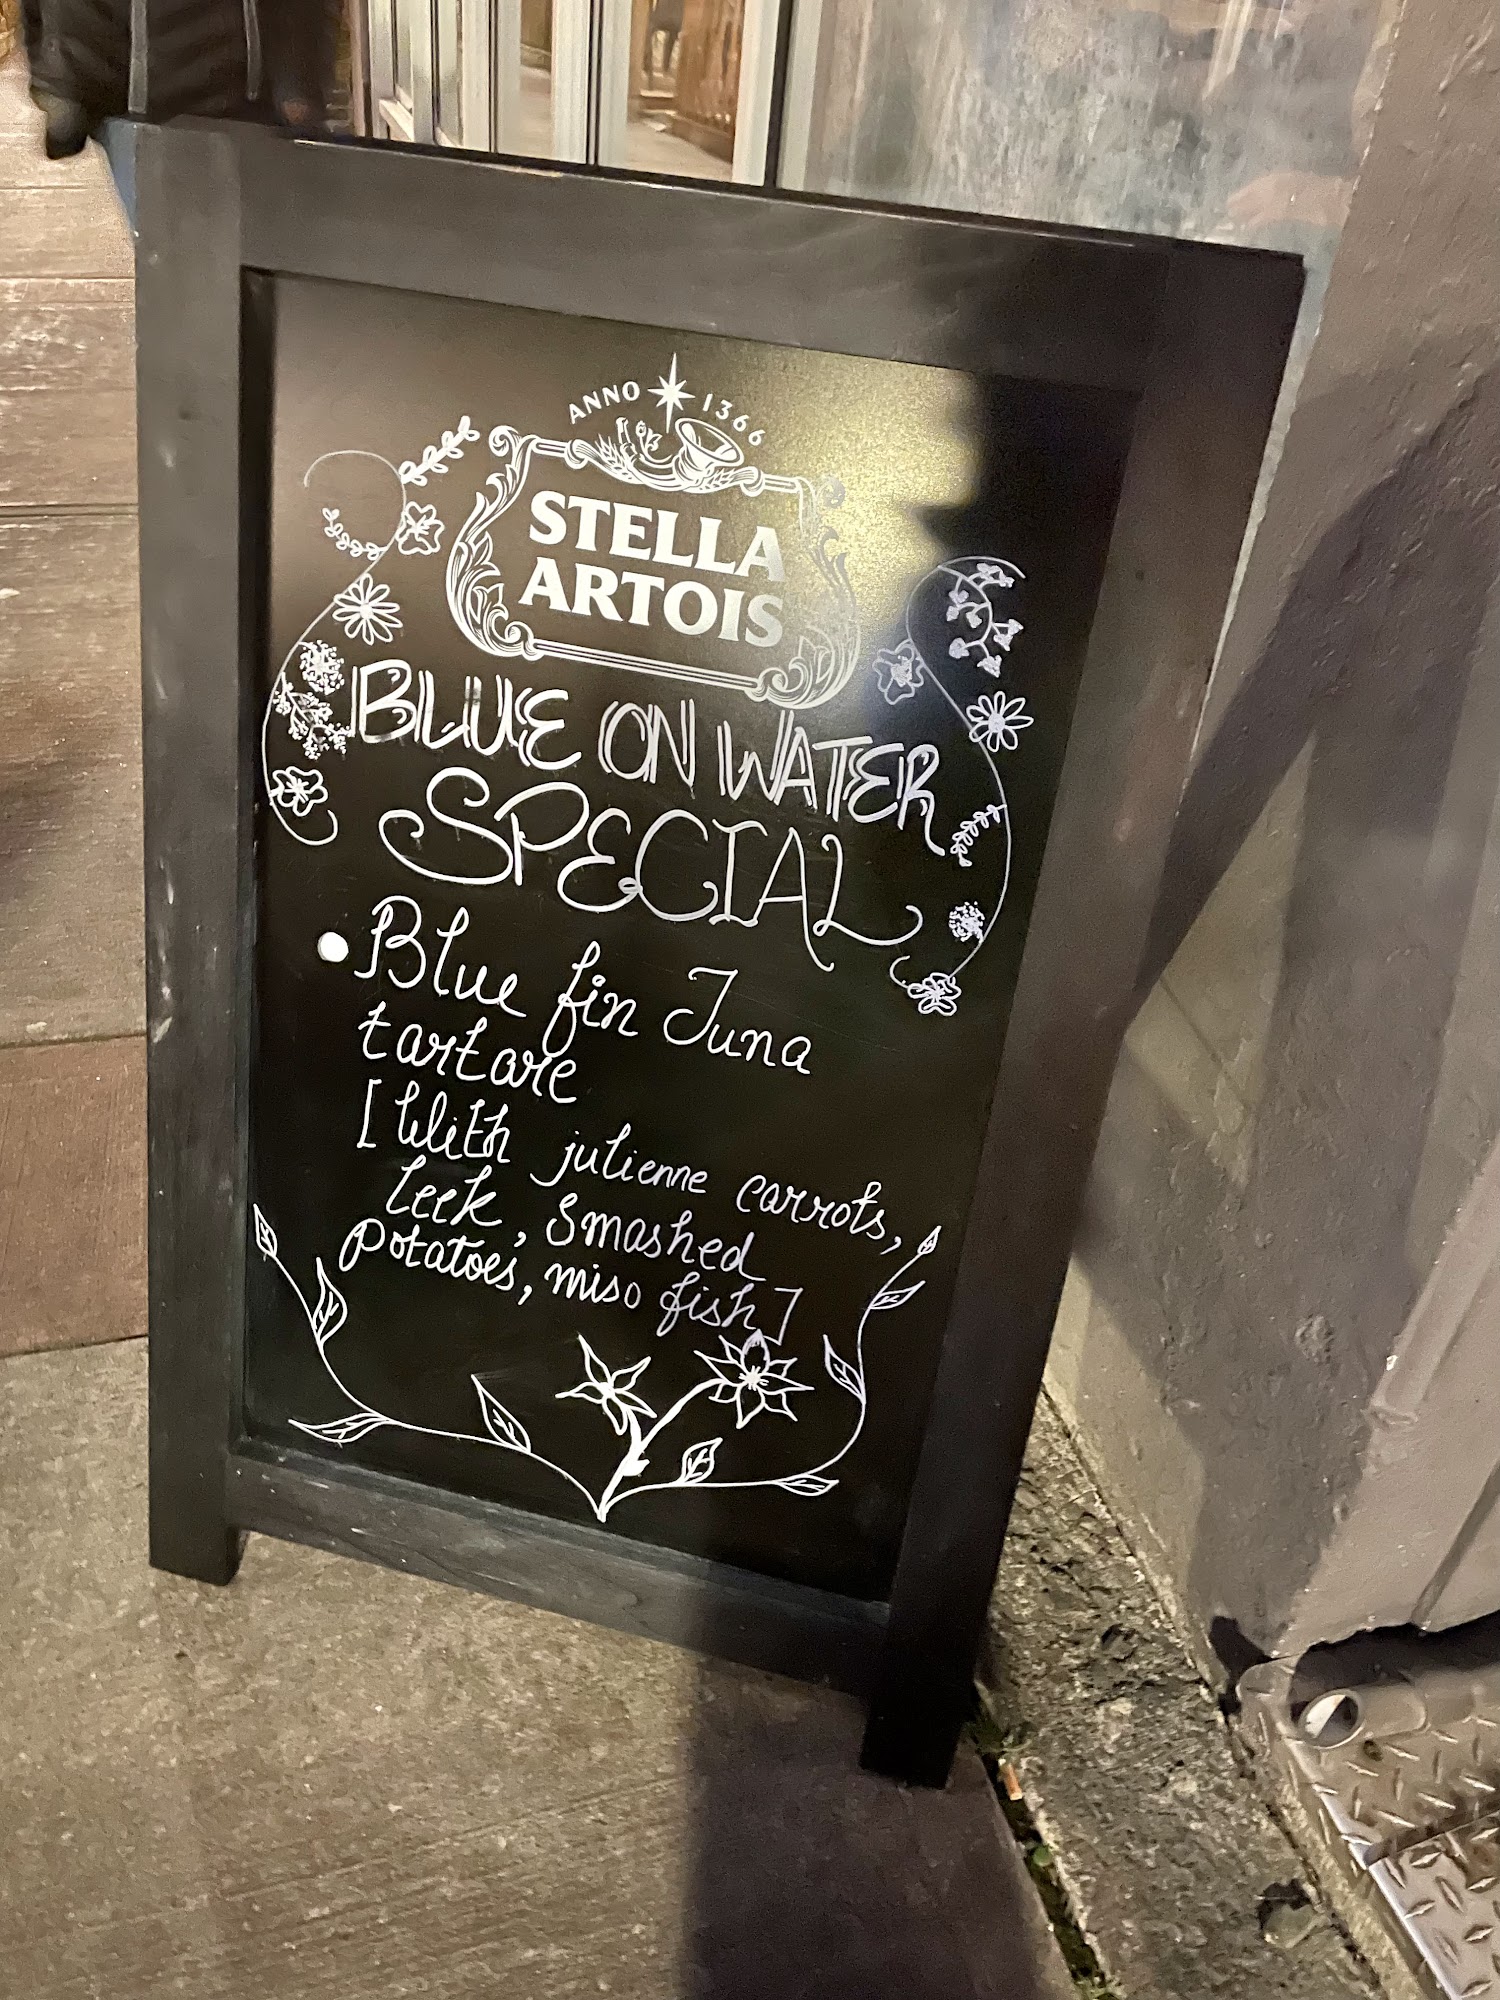 ANNO 1366
STELLA
ARTOIS
BLUE ON WATER
SPECIAL
Blue fin Tuna
tartare
[With julienne carrots,
leek, Smashed
potatoes, miso fish]